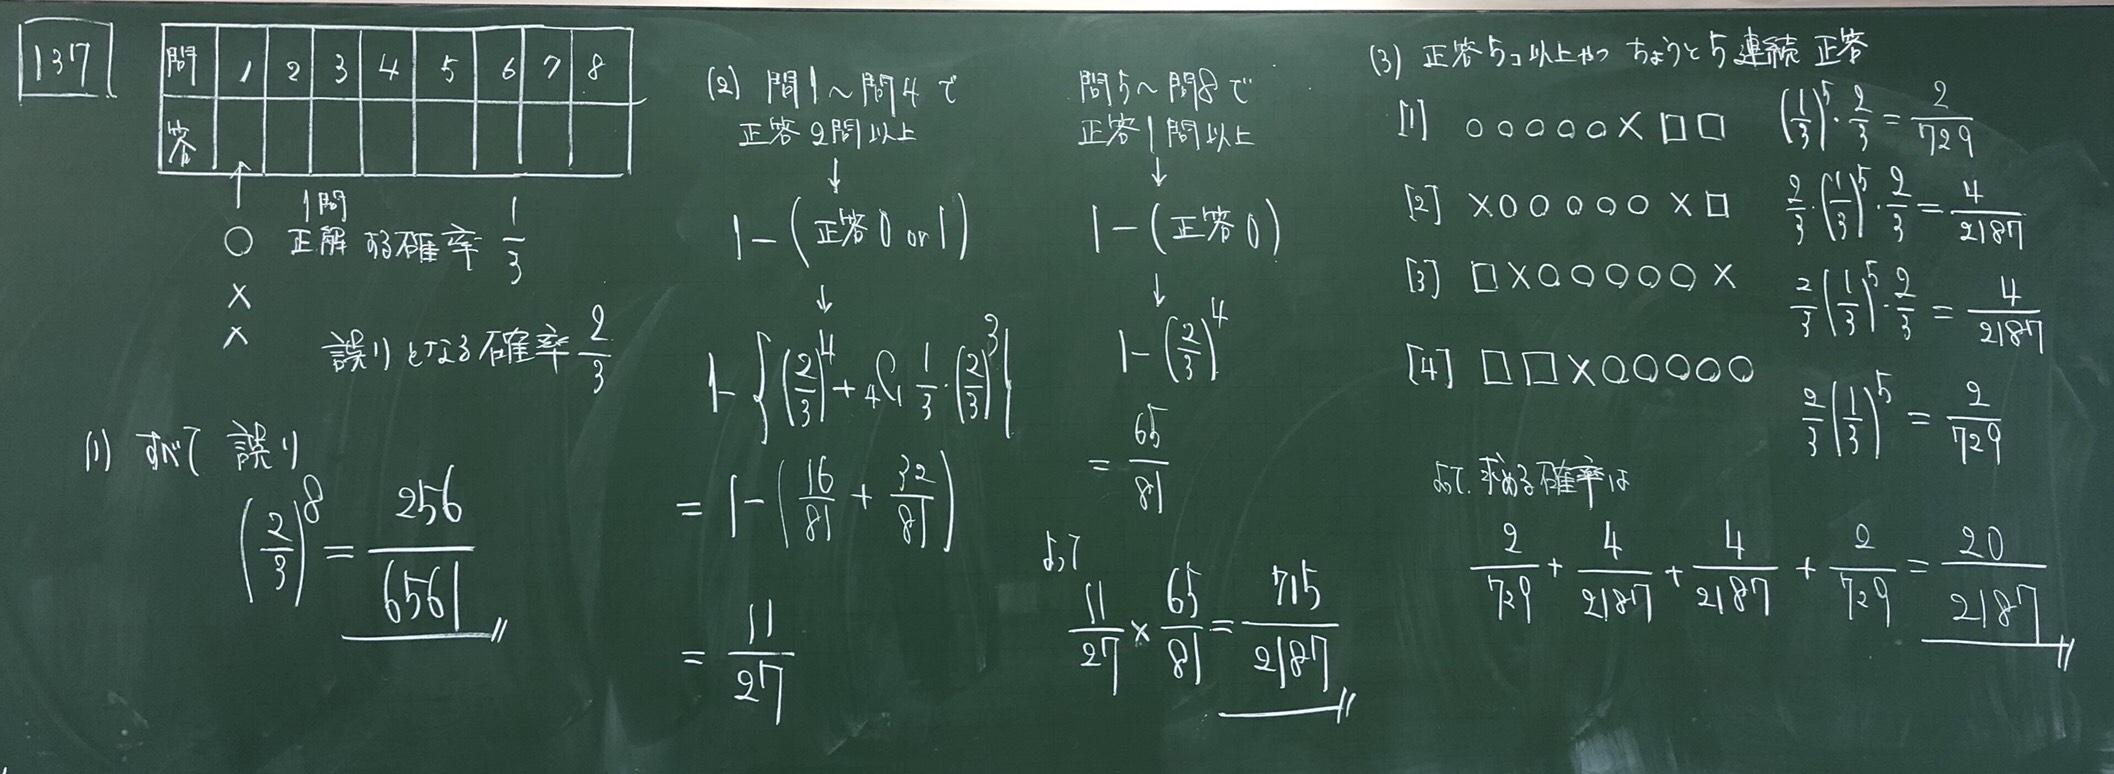 137
問 1 2 3 4 5 6 7 8
答
↑
○
×
×
1問
正解する確率 1/3
誤りとなる確率 2/3
(1) すべて 誤り
(2/3)^8 = 256/6561
(2) 問1～問4で
正答2問以上
↓
1－(正答0 or 1)
↓
1－{(2/3)^4 + 4C1 1/3・(2/3)^3}
= 1－(16/81 + 32/81)
= 11/27
問5～問8で
正答1問以上
↓
1－(正答0)
↓
1－(2/3)^4
= 65/81
よって
11/27 × 65/81 = 715/2187
(3) 正答5コ以上かつ ちょうど5連続 正答
[1] ○○○○○×□□ (1/3)^5・2/3 = 2/729
[2] ×○○○○○×□ 2/3・(1/3)^5・2/3 = 4/2187
[3] □×○○○○○× 2/3(1/3)^5・2/3 = 4/2187
[4] □□×○○○○○ 2/3(1/3)^5 = 2/729
よって、求める確率は
2/729 + 4/2187 + 4/2187 + 2/729 = 20/2187